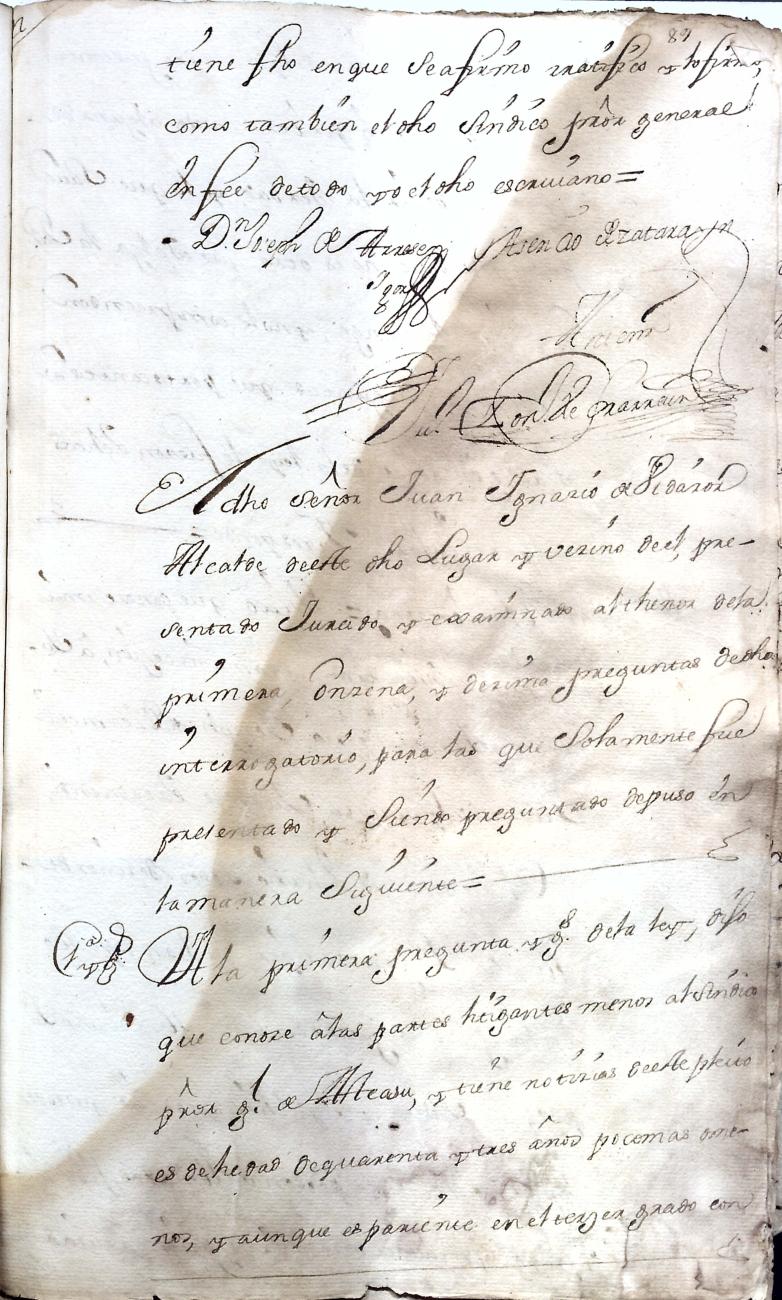 89
tiene fho enque seafirmo ratifico y lo firmo,
como tambien el dho sindico prõr general
en fee detodo yo el dho escrivano=
D.n Joseph de Asencio de Zatarayn
Antemi
de Ynarrain
El dho señor Juan Ignacio de Vidaror
Alcalde deeste dho Lugar y vecino deel, pre-
sentado Jurado, y examinado al thenor dela
primera, onzena, y dezima preguntas dedho
interrogatorio, para las que solamente fue
presentado y siendo preguntado depuso en
lamanera siguiente=
1.a y g A la primera pregunta y g.s dela ley, dijo
que conoze àlas partes litigantes menos al sindico
prõr g.l de Alteasu, y tiene notizias deeste pleito
es dehedad dequarenta y tres años pocomas ome-
nos, y aunque es pariente en el terzer grado con